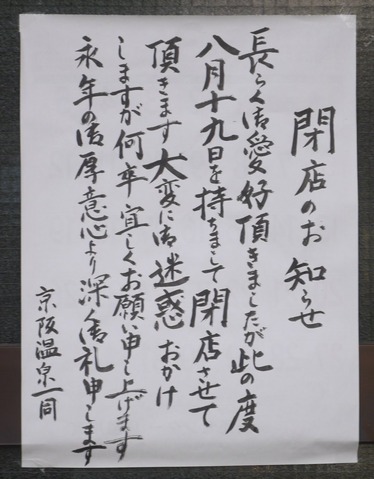 閉店のお知らせ
長らく御愛好頂きましたが此の度
八月十九日を持ちまして閉店させて
頂きます大変に御迷惑おかけ
しますが何卒宜しくお願い申し上げます
永年の御厚意心より深く御礼申します
京阪温泉一同